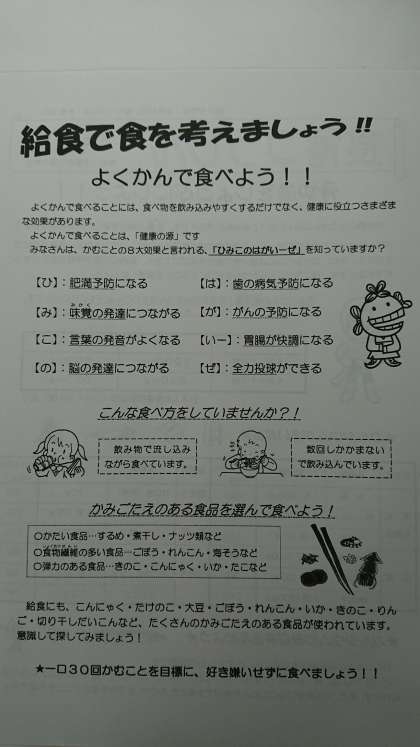 給食で食を考えましょう!!
よくかんで食べよう!!
よくかんで食べることには、食べ物を飲み込みやすくするだけでなく、健康に役立つさまざま
な効果があります。
よくかんで食べることは、「健康の源」です
みなさんは、かむことの8大効果と言われる、「ひみこのはがいーぜ」を知っていますか?
【ひ】:肥満予防になる 【は】:歯の病気予防になる
みかく
【み】:味覚の発達につながる 【が】:がんの予防になる
【こ】:言葉の発音がよくなる 【いー】:胃腸が快調になる
【の】:脳の発達につながる 【ぜ】:全力投球ができる
こんな食べ方をしていませんか?!
飲み物で流し込み
ながら食べています。
数回しかかまない
で飲み込んでいます。
かみごたえのある食品を選んで食べよう!
○かたい食品…するめ・煮干し・ナッツ類など
○食物繊維の多い食品…ごぼう・れんこん・海そうなど
○弾力のある食品…きのこ・こんにゃく・いか・たこなど
給食にも、こんにゃく・たけのこ・大豆・ごぼう・れんこん・いか・きのこ・りん
ご・切り干しだいこんなど、たくさんのかみごたえのある食品が使われています。
意識して探してみましょう!
★一口30回かむことを目標に、好き嫌いせずに食べましょう!!